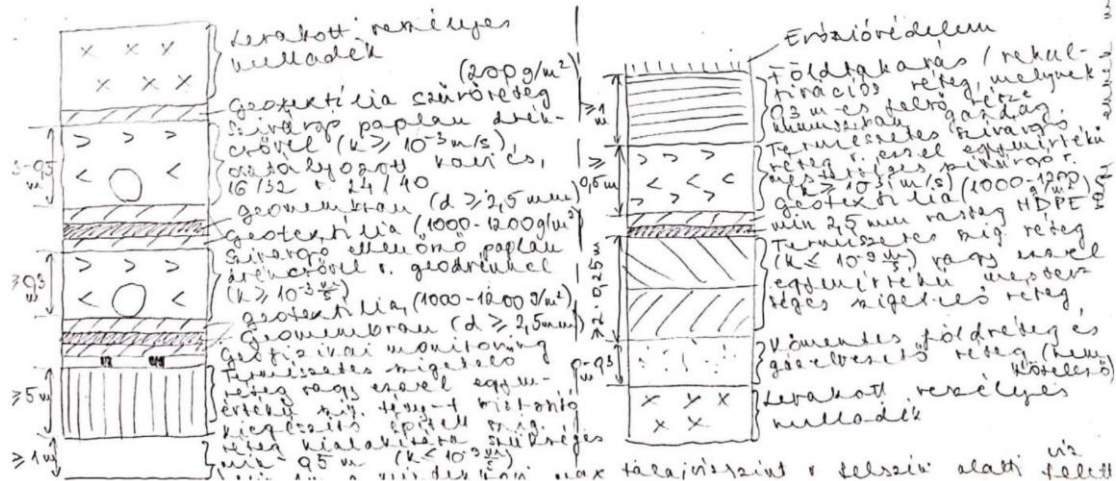 Lerakott veszélyes
hulladék
(200g/m²)
geotextília szűrőréteg
Szivárgó paplan drén-
csővel (k ≥ 10⁻³ m/s)
osztályozott kavics,
16/32 v. 24/40
geomembrán (d ≥ 2,5mm)
geotextília (1000-1200g/m²)
Szivárgó ellenőrző paplan
dréncsővel v. geodrénnel
(k ≥ 10⁻³ m/s)
geotextília, (1000-1200 g/m²)
geomembrán (d ≥ 2,5mm)
geofizikai monitoring
Természetes szigetelő
réteg vagy ezzel egyen-
értékű szig.
kiegészítő épített szig.
réteg kialakítása szükséges
min 0,5 m (k ≤ 10⁻⁹ m/s)
max talajvízszint v. felszín alatti víz felett
≥0,3
m
≥5 m
≥1m
Erózióvédelem
Földtakarás / rekul-
tivációs réteg, melynek
0,3 m-es felső része
humuszban gazdag.
Természetes szivárgó
réteg v. ezzel egyenértékű
mesterséges szivárgó r.
(k ≥ 10⁻³ m/s) (1000-1200
g/m²)
geotextília
min 2,5 mm vastag HDPE
Természetes szig. réteg
(k ≤ 10⁻⁹ m/s) vagy ezzel
egyenértékű mester-
séges szigetelő réteg
Kőmentes földréteg és
gázelvezető réteg (nem
kötelező)
Lerakott veszélyes
hulladék
≥1
m
≥
0,5 m
≥2×0,25m
0-0,3
m